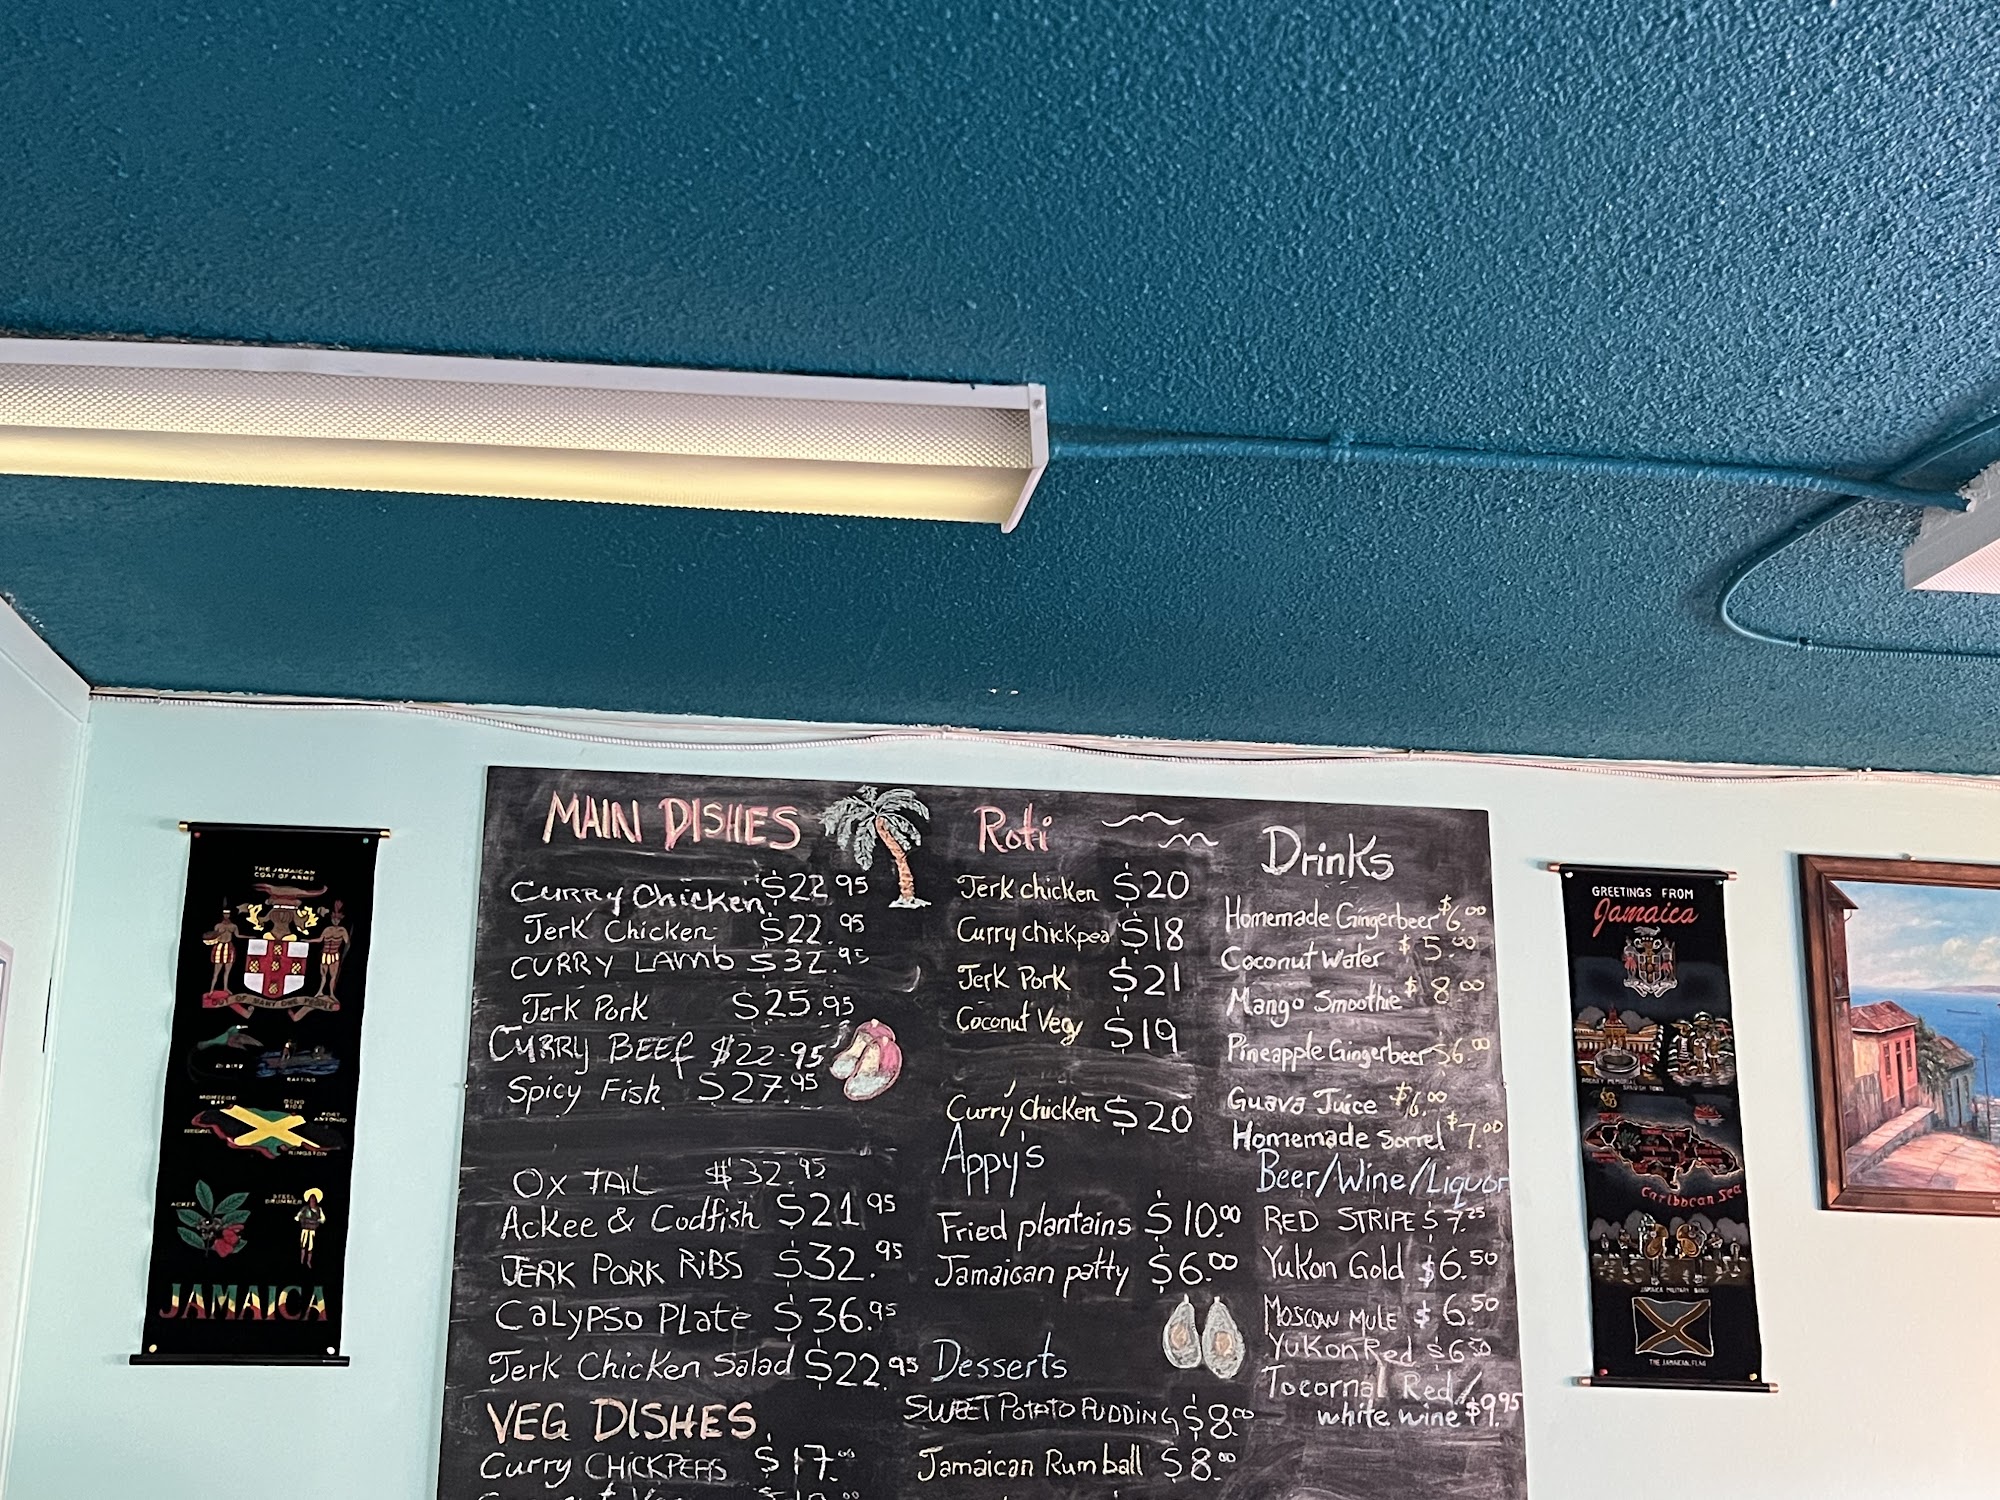 MAIN DISHES
CURRY Chicken $22.95
Jerk Chicken $22.95
CURRY LAMb $32.95
Jerk Pork $25.95
CURRY BEEf $22.95
Spicy Fish $27.95
OX TAIL $32.95
Ackee & Codfish $21.95
JERK PORK RiBS $32.95
CALYPSO PLATE $36.95
Jerk Chicken Salad $22.95
VEG DISHES
Curry CHICKPEAS $17.00
Roti
Jerk chicken $20
Curry chickpea $18
Jerk Pork $21
Coconut Veg $19
Curry chicken $20
Appy's
Fried plantains $10.00
Jamaican patty $6.00
Desserts
SWEET POTATO PUDDING $8.00
Jamaican Rum ball $8.00
Drinks
Homemade Gingerbeer $6.00
Coconut Water $5.00
Mango Smoothie $8.00
Pineapple Gingerbeer $6.00
Guava Juice $6.00
Homemade Sorrel $7.00
Beer/Wine/Liquor
RED STRIPE $7.25
Yukon Gold $6.50
MOSCOW MULE $6.50
Yukon Red $6.50
Tocornal Red/
white wine $9.95
THE JAMAICAN
COAT OF ARMS
OUT OF MANY ONE PEOPLE
RAFTING
MONTEGO
BAY
OCHO
RIOS
PORT
ANTONIO
NEGRIL
KINGSTON
ACKEE
STEEL
DRUMMER
JAMAICA
GREETINGS FROM
Jamaica
Caribbean Sea
JAMAICA MILITARY BAND
THE JAMAICAN FLAG